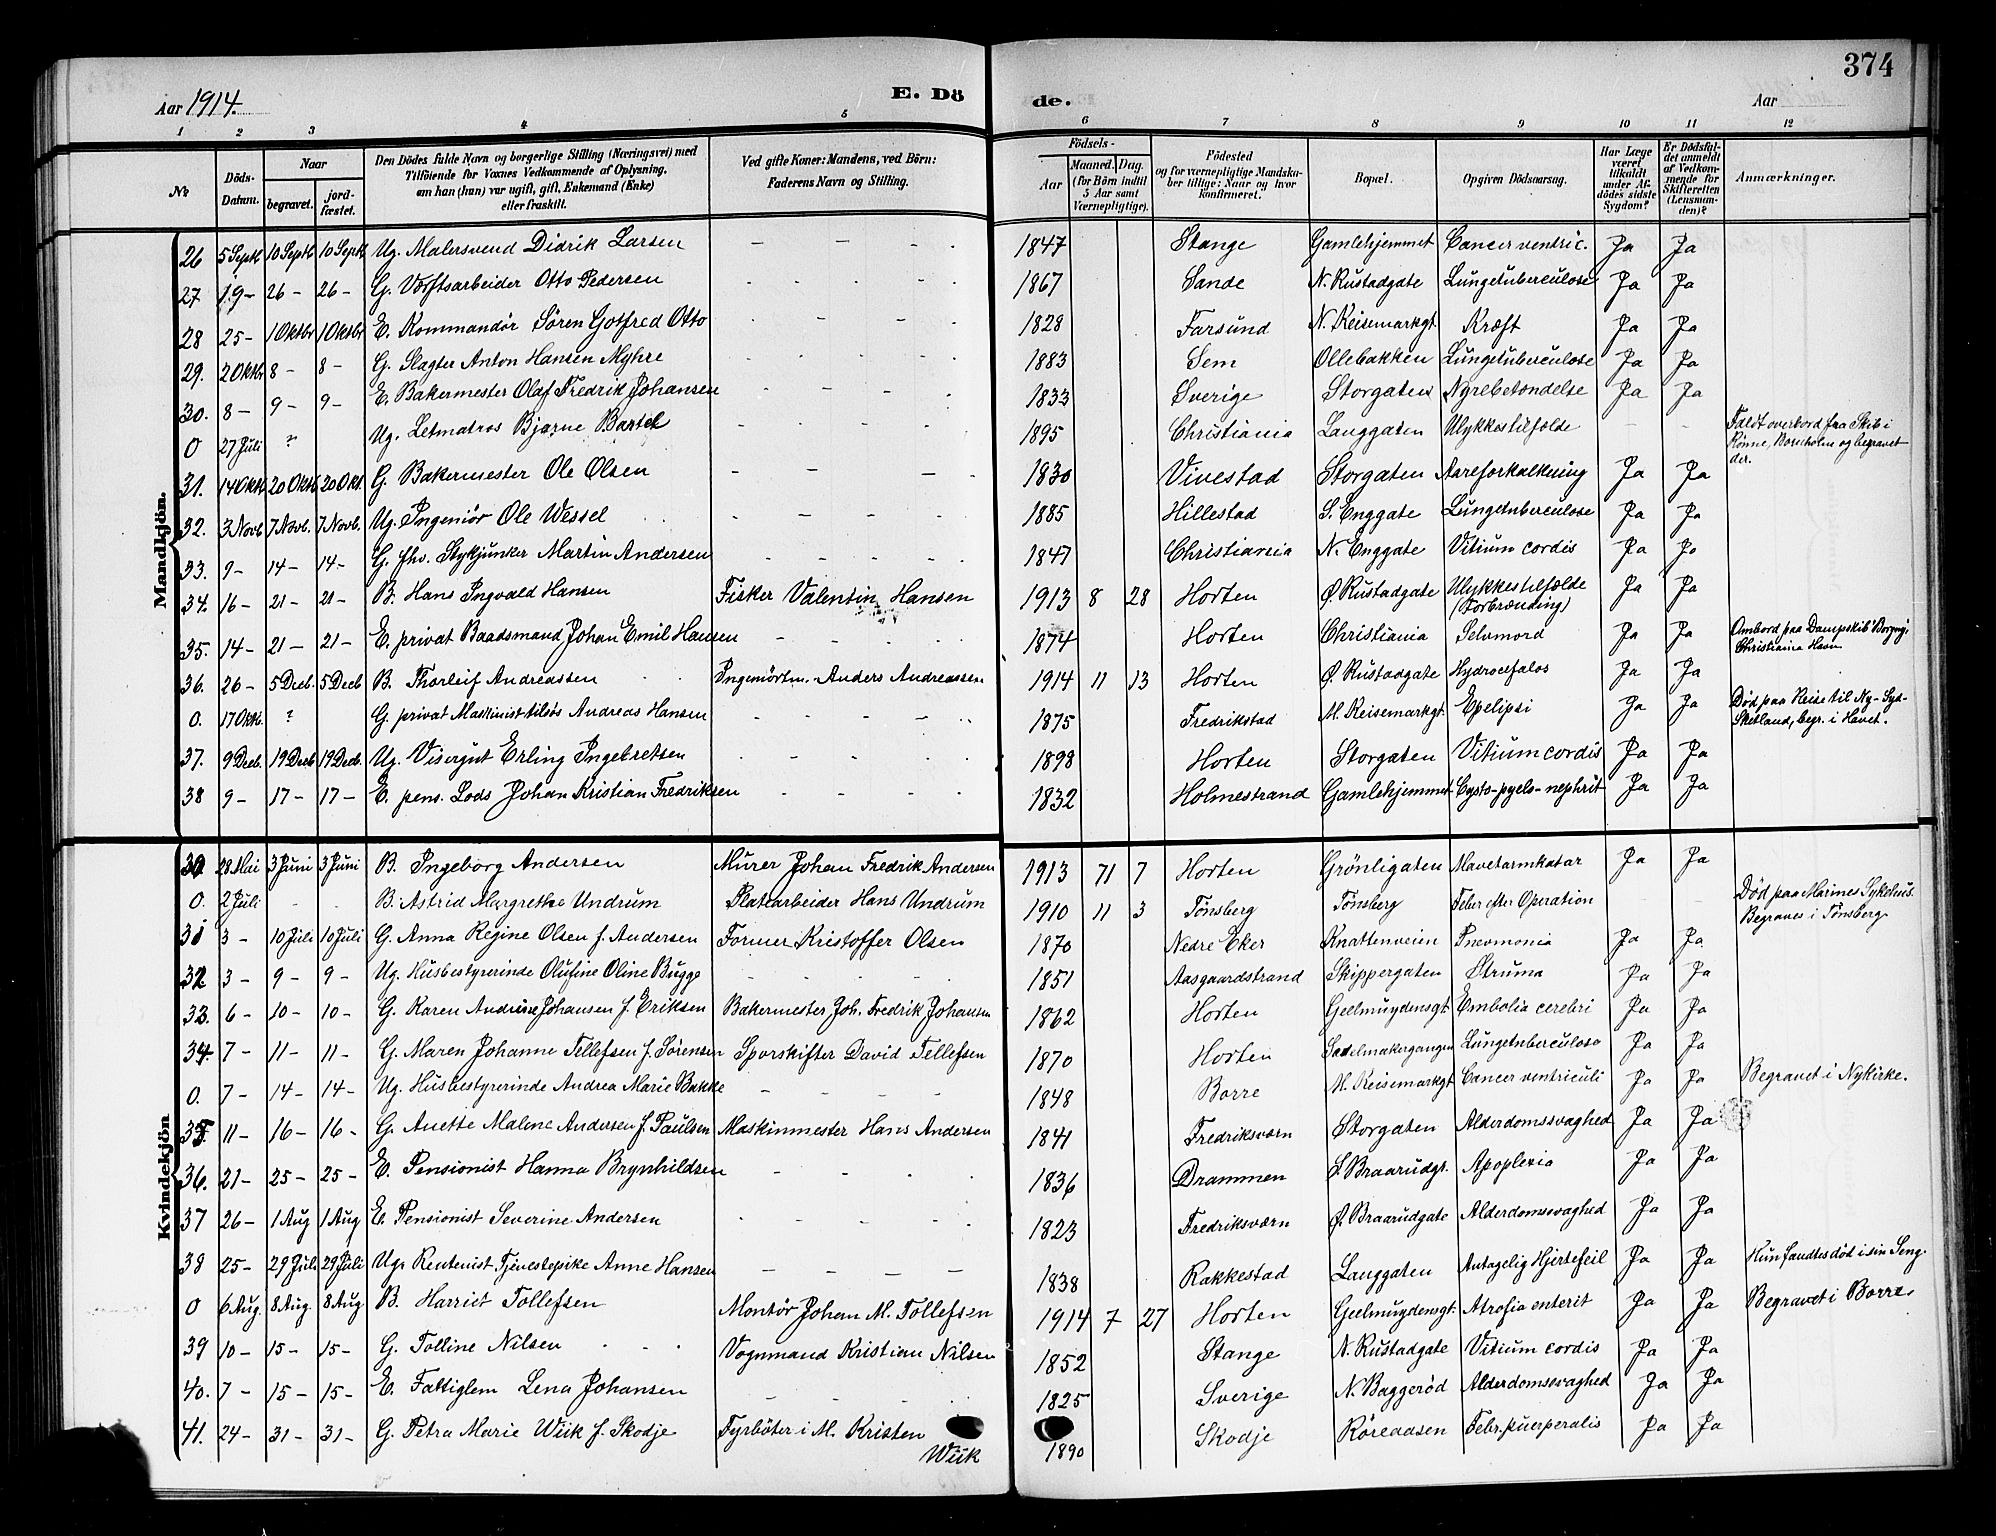 374
Aar 1914.
E. Dö de.
Aar
1 2 3 4 5 6 7 8 9 10 11 12
No
Döds-Datum.
Naar
begravet.
jord-fæstet.
Den Dödes fulde Navn og borgerlige Stilling (Næringsvei) med
Tilföiende for Voxnes Vedkommende af Oplysning,
om han (hun) var ugift, gift, Enkemand (Enke)
eller fraskilt.
Ved gifte Koner: Mandens, ved Börn:
Faderens Navn og Stilling.
Födsels-
Aar
Maaned. Dag.
(for Börn indtil
5 Aar samt
Værnepligtige).
Födested
og for værnepligtige Mandska-
ber tillige: Naar og hvor
konfirmeret.
Bopæl.
Opgiven Dödsaarsag.
Har Læge
været
tilkaldt
under Af-
dödes sidste
Sygdom?
Er Dödsfal-
det anmeldt
af Vedkom-
mende for
Skifteretten
(Lensman-
den)?
Anmærkninger.
Mandkjön.
26 5 Septb 10 Septb 10 Septb Ug. Malersvend Didrik Larsen – – - - 1847 Stange Gamlehjemmet Cancer ventric. Ja Ja
27 19– 26 – 26 – G. Værftsarbeider Otto Pedersen - - - - 1867 Sande N. Rustadgate Lungetuberculose Ja Ja
28 25– 1 Oktbr 1 Oktbr E. Kommandör Sören Gotfred Otto - - – - 1828 Farsund N. Keisemarkgt Kræft Ja Ja
29. 2 Oktbr 8 – 8 – G. Slagter Anton Hansen Myhre - - - - 1883 Sem Ollebakken Lungetuberculose Ja Ja
30. 8 – 9 – 9 – E. Bakermester Olaf Fredrik Johansen - – - 1833 Sverige Storgaten Nyrebetændelse Ja Ja
0 27 Juli ? Ug. Letmatros Bjarne Bartel - - - - 1895 Christiania Langgaten Ulykkestilfælde – – Faldt overbord fra Skib i
Rønne, Bornholm og begravet
der.
31. 14 Oktb 20 Oktb 20 Okt. G. Bakermester Ole Olsen – – – - 1830 Vivestad Storgaten Aareforkalkning Ja Ja
32. 3 Novb 7 Novb. 7 Novb. Ug. Ingeniör Ole Wessel – – - - 1885 Hillestad S. Enggate Lungetuberculose Ja Ja
33. 9 – 14 – 14 – G. fhv. Stykjunker Martin Andersen – – – – 1847 Christiania N. Enggate Vitium cordis Ja Ja
34. 16 – 21 – 21 – B. Hans Ingvald Hansen Fisker Valentin Hansen 1913 8 28 Horten Ø. Rustadgate Ulykkestilfælde
(Forbrænding) Ja Ja
35. 14 – 21 – 21 – E. privat Baadsmand Johan Emil Hansen – - - 1874 Horten Christiania Selvmord Ja Ja Ombord paa Dampskib "Borgny,
Christiania Havn
36. 26 – 5 Decb. 5 Decb B. Thorleif Andreassen Ingeniörtm. Anders Andreassen 1914 11 13 Horten Ø. Rustadgate Hydrocefalos Ja Ja
0. 17 Oktb. ? G. privat Maskinist tilsös Andreas Hansen - - - - 1875 Fredrikstad M. Keisemarkgt. Epelipsi Ja Ja Död paa Reise til Ny-Syd-
Sketland, begr. i Havet.
37. 9 Decb. 19 Decb 19 Decb. Ug. Visergut Erling Ingebretsen - - - - 1898 Horten Storgaten Vitium cordis Ja Ja
38 9 – 17 – 17 – E. pens. Lods Johan Kristian Fredriksen - - - 1832 Holmestrand Gamlehjemmet Cysto-pyelo-nephrit Ja Ja
Kvindekjön
30 28 Mai 3 Juni 3 Juni B. Ingeborg Andersen Murer Johan Fredrik Andersen 1913 71 7 Horten Grönligaten Mavetarmkatar Ja Ja
0. 2 Juli - - B. Astrid Margrethe Undrum Platearbeider Hans Undrum 1910 11 3 Tönsberg Tönsberg Feber efter Operation - - Död paa Marines Sykehus.
Begraves i Tönsberg
31 3 – 10 Juli 10 Juli G. Anna Regine Olsen f. Andersen Former Kristoffer Olsen 1870 Nedre Eker Knattenveien Pneumonia Ja Ja
32 3 – 9 – 9 – Ug. Husbestyrerinde Olufine Oline Bugge - - - - 1851 Aasgaardstrand Skippergaten Struma Ja Ja
33. 6 – 10 – 10 – G. Karen Andrine Johansen f. Eriksen Bakermester Joh. Fredrik Johansen 1862 Horten Geelmuydensgt Embolia cerebri Ja Ja
34 7 – 11 – 11 – G. Maren Johanne Tellefsen f. Sörensen Sporskifter David Tellefsen 1870 Horten Sadelmakergangen Lungetuberculose Ja Ja
0. 7 – 14 – 14 – Ug. Husbestyrerinde Andrea Marie Bakke – - - - 1848 Borre M. Keisemarkgt Cancer ventriculi Ja Ja Begravet i Nykirke.
35 11 – 16 – 16 – G. Anette Malene Andersen f. Paulsen Maskinmester Hans Andersen 1841 Fredriksværn Storgaten Alderdomssvaghed Ja Ja
36. 21 – 25 – 25 – E. Pensionist Hanna Brynhildsen – - - - 1836 Drammen S. Braarudgt. Apoplexia Ja Ja
37 26 – 1 Aug 1 Aug E. Pensionist Severine Andersen - - - - 1823 Fredriksværn Ø. Braarudgate Alderdomssvaghed Ja Ja
38 25 – 29 Juli 29 Juli Ug. Rentenist Tjenestepike Anne Hansen – – – – 1838 Rakkestad Langgaten Antagelig Hjertefeil Ja Ja Hun fandtes död i sin Seng.
0 6 Aug. 8 Aug. 8 Aug. B. Harriet Tollefsen Montör Johan M. Tollefsen 1914 7 27 Horten Geelmuydensgt. Atrofia enterit Ja Ja Begravet i Borre.
39 10 – 15 – 15 – G. Tolline Nilsen Vognmand Kristian Nilsen 1852 Stange N. Rustadgate Vitium cordis Ja Ja
40. 7 – 15 – 15 – E. Fattiglem Lena Johansen – - - - 1825 Sverige N. Baggeröd Alderdomssvaghed Ja Ja
41. 24 – 31 – 31 – G. Petra Marie Wiik f. Skodje Fyrböter i M. Kristen
Wiik 1890 Skodje Röreaasen Febr. puerperalis Ja Ja